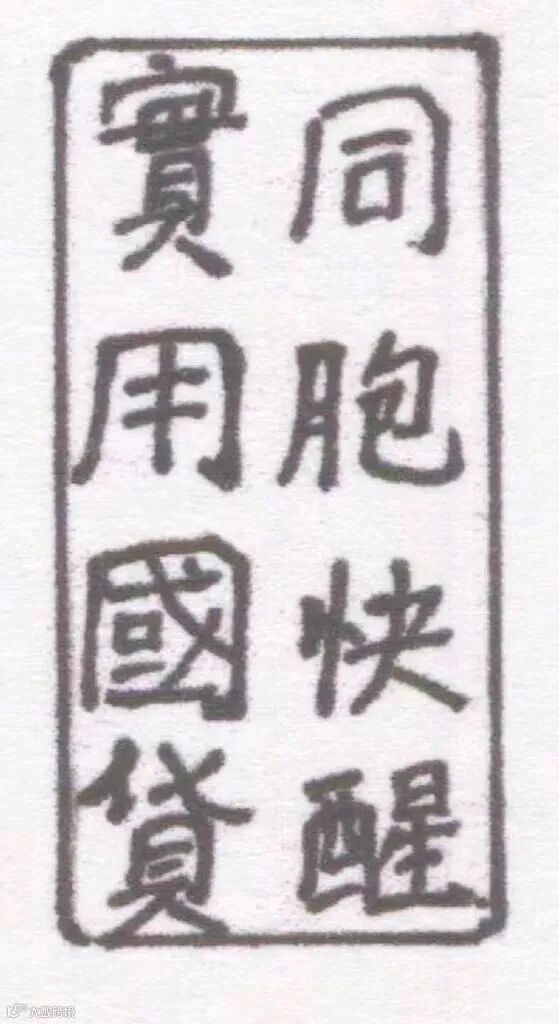 同胞快醒
實用國貨